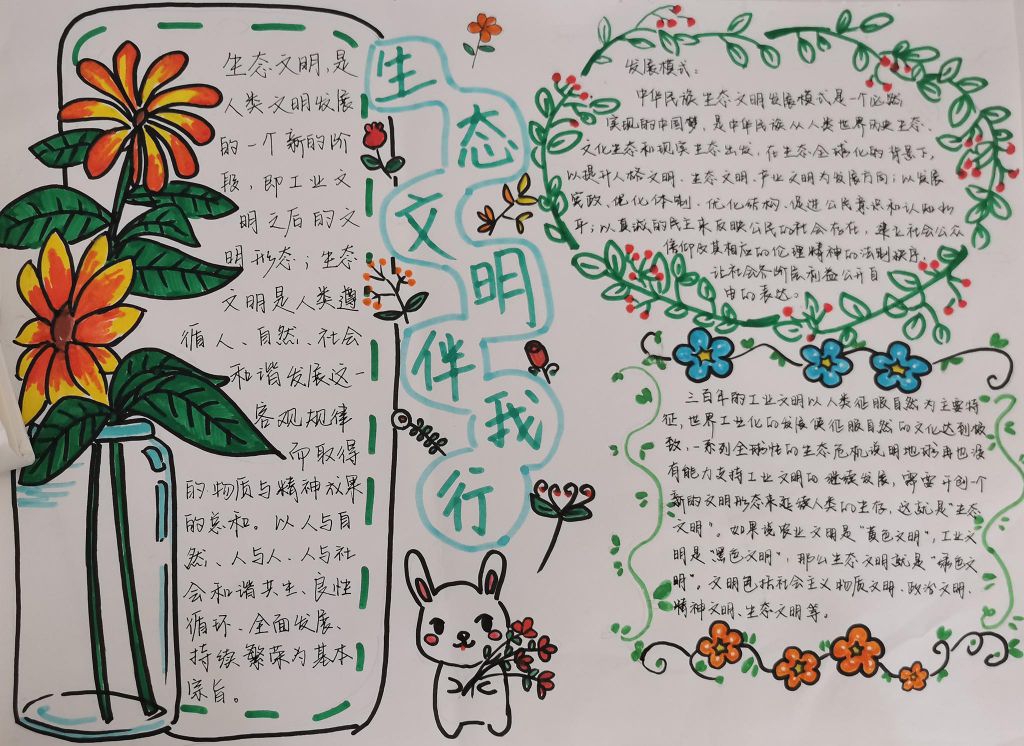 生态文明伴我行
生态文明,是
人类文明发展
的一个新的阶
段,即工业文
明之后的文
明形态;生态
文明是人类遵
循人、自然、社会
和谐发展这一
客观规律
而取得
的物质与精神成果
的总和。以人与自
然、人与人、人与社
会和谐共生、良性
循环、全面发展、
持续繁荣为基本
宗旨。
发展模式:
中华民族生态文明发展模式是一个必然
实现的中国梦,是中华民族从人类世界历史生态、
文化生态和现实生态出发,在生态全球化的背景下,
以提升人格文明、生态文明、产业文明为发展方向;以发展
宪政、优化体制、优化结构、促进公民意识和认知水
平;以真诚的民主来反映公民的社会存在,建立社会公众
信仰及其相应的伦理精神的法制秩序,
让社会各阶层利益公开自
由的表达。
三百年的工业文明以人类征服自然为主要特
征,世界工业化的发展使征服自然的文化达到极
致,一系列全球性的生态危机说明地球再也没
有能力支持工业文明的继续发展,需要开创一个
新的文明形态来延续人类的生存,这就是"生态
文明"。如果说农业文明是"黄色文明",工业文
明是"黑色文明",那么生态文明就是"绿色文
明"。文明包括社会主义物质文明、政治文明、
精神文明、生态文明等。